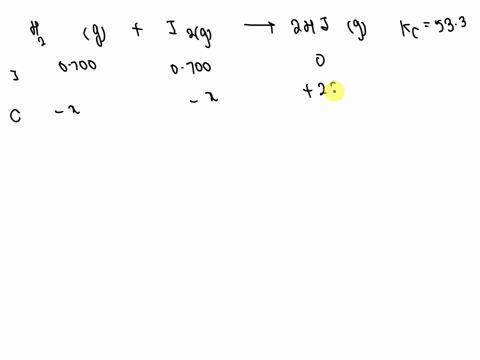 H₂ (g) + I₂(g) → 2HI (g) Kc = 53.3
I 0.700 0.700 0
C -x -x +2